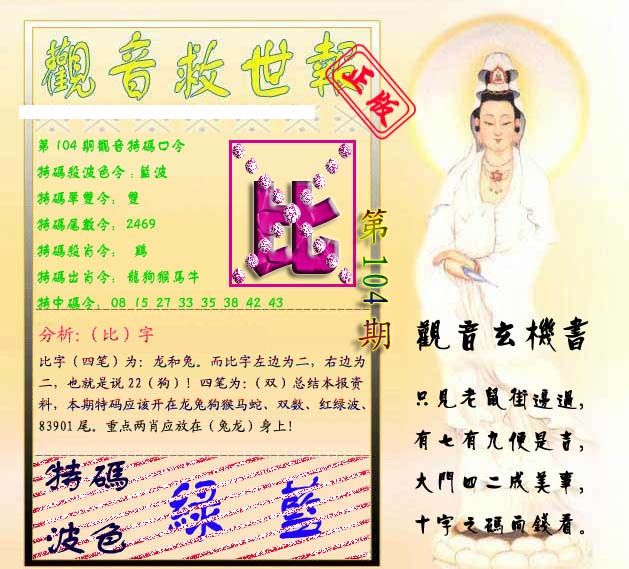 觀音救世報
正版
第104期觀音特碼口令
特碼殺波色令:藍波
特碼單雙令: 雙
特碼尾數令: 2469
特碼殺肖令: 鷄
特碼出肖令: 龍狗猴馬牛
特中碼令: 08 15 27 33 35 38 42 43
比
第104期
分析:（比）字
比字（四笔）为：龙和兔。而比字左边为二，右边为
二，也就是说22（狗）！四笔为：（双）总结本报资
料，本期特码应该开在龙兔狗猴马蛇、双数、红绿波、
83901尾。重点两肖应放在（兔龙）身上！
特碼
波色
綠 藍
觀音玄機書
只見老鼠街邊過，
有七有九便是吉，
大門四二成美事，
十字之碼面錢看。